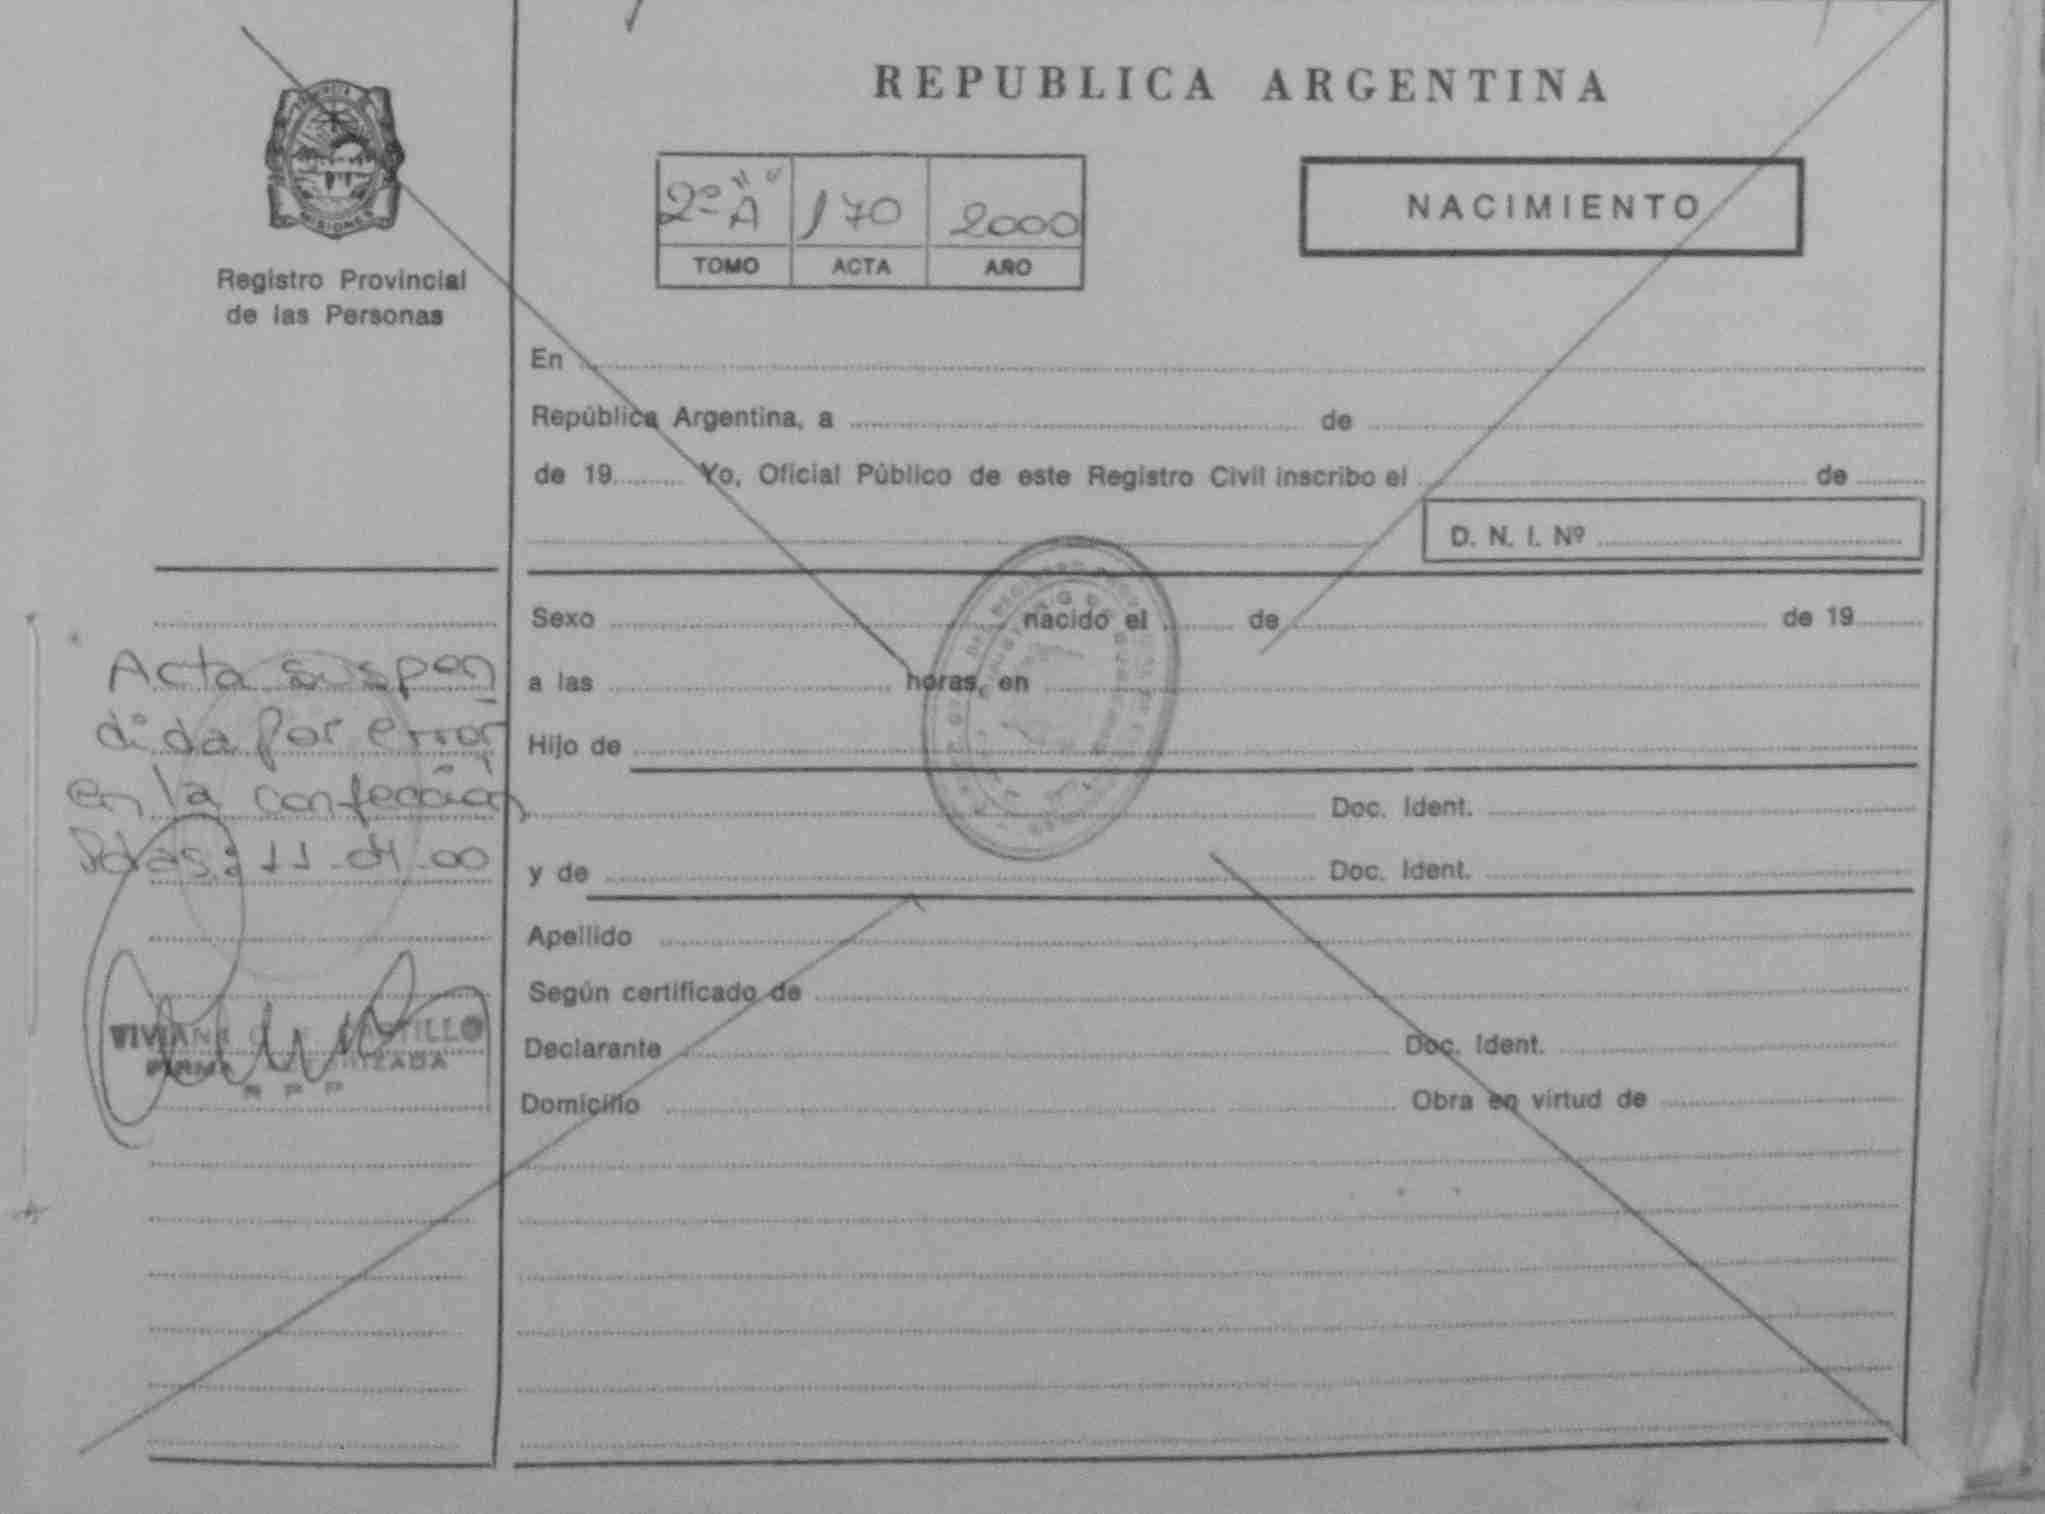 PROVINCIA
MISIONES
Registro Provincial
de las Personas
REPUBLICA ARGENTINA
2º "A" 170 2000
TOMO ACTA AÑO
NACIMIENTO
En
República Argentina, a de
de 19 Yo, Oficial Público de este Registro Civil inscribo el de
D. N. I. Nº
Sexo nacido el de de 19
a las horas, en
Hijo de
Doc. Ident.
y de Doc. Ident.
Apellido
Según certificado de
Declarante Doc. Ident.
Domicilio Obra en virtud de
Acta suspen
dida por error
en la confección
Pdas: 11-04-00
VIVIANA CASTILLO
FIRMA AUTORIZADA
R P P